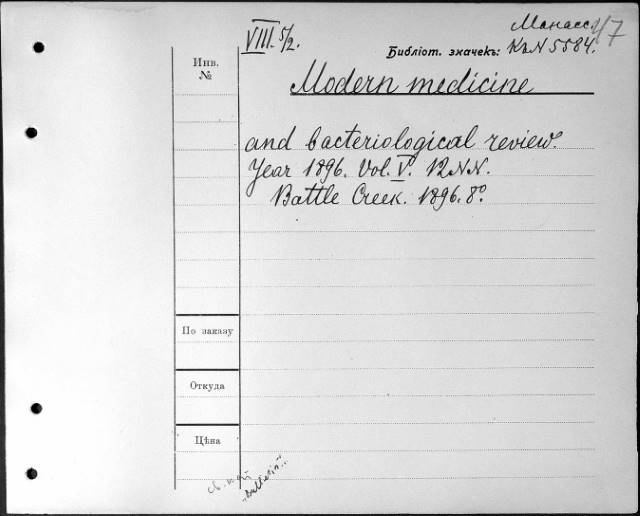 VIII. 5/2.
Манасс. 47
Библіот. значекъ: К. N 5584.
Инв.
№
Modern medicine
and bacteriological review.
Year 1896. Vol. V. 12 NN.
Battle Creek. 1896. 8°.
По заказу
Откуда
Цѣна
„Bulletin"